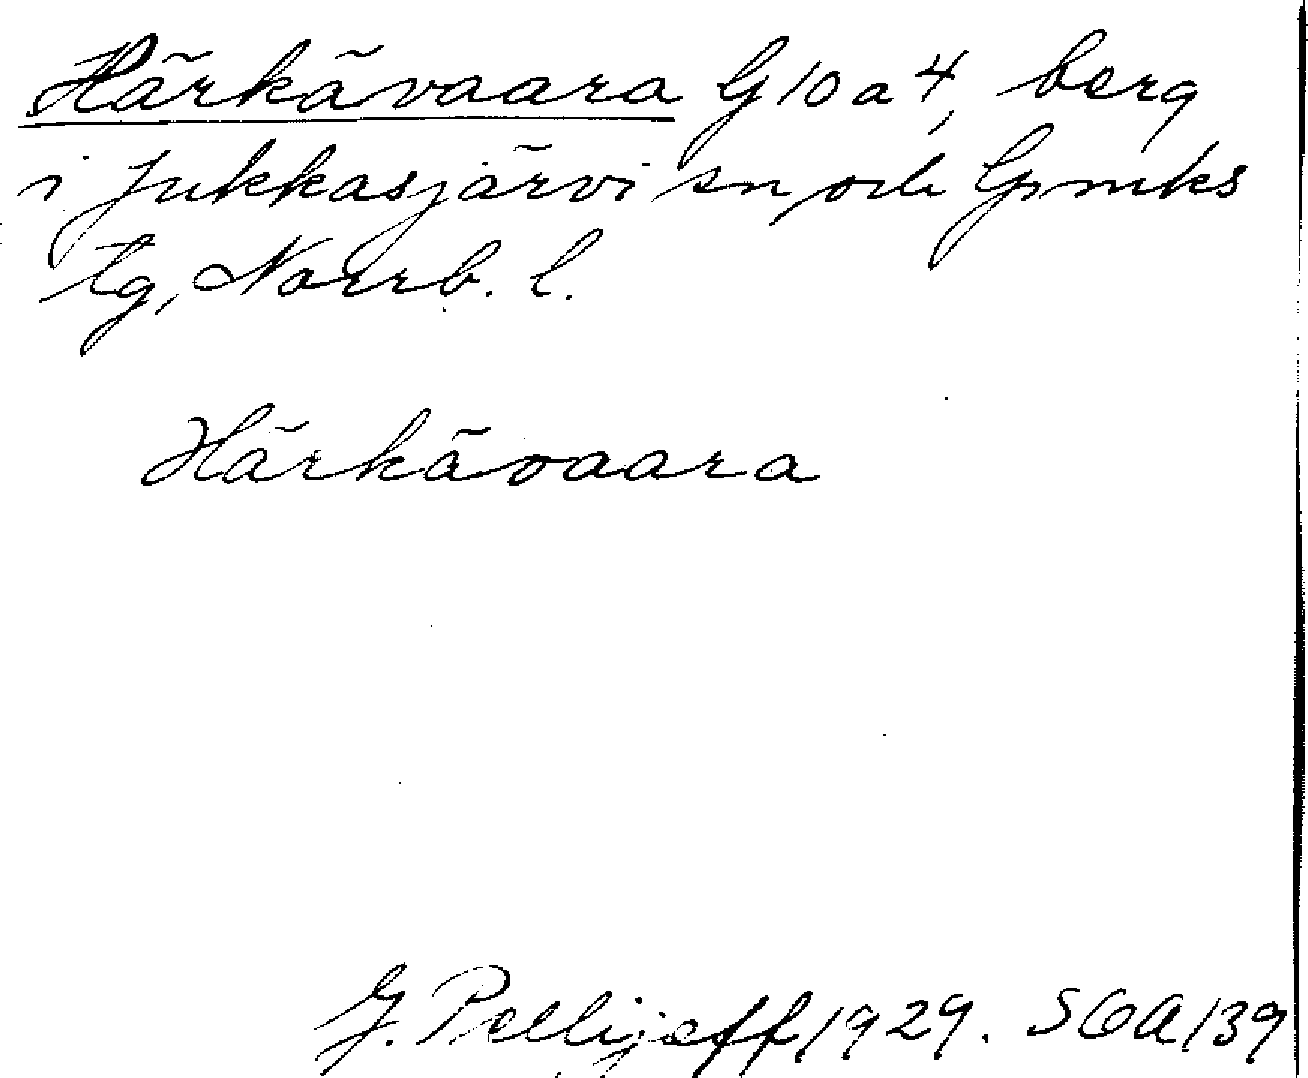 Härkävaara G10a4, berg
i Jukkasjärvi sn och Gpmks
tg, Norrb. l.
Härkävaara
G. Pellijeff 1929. SOA 139